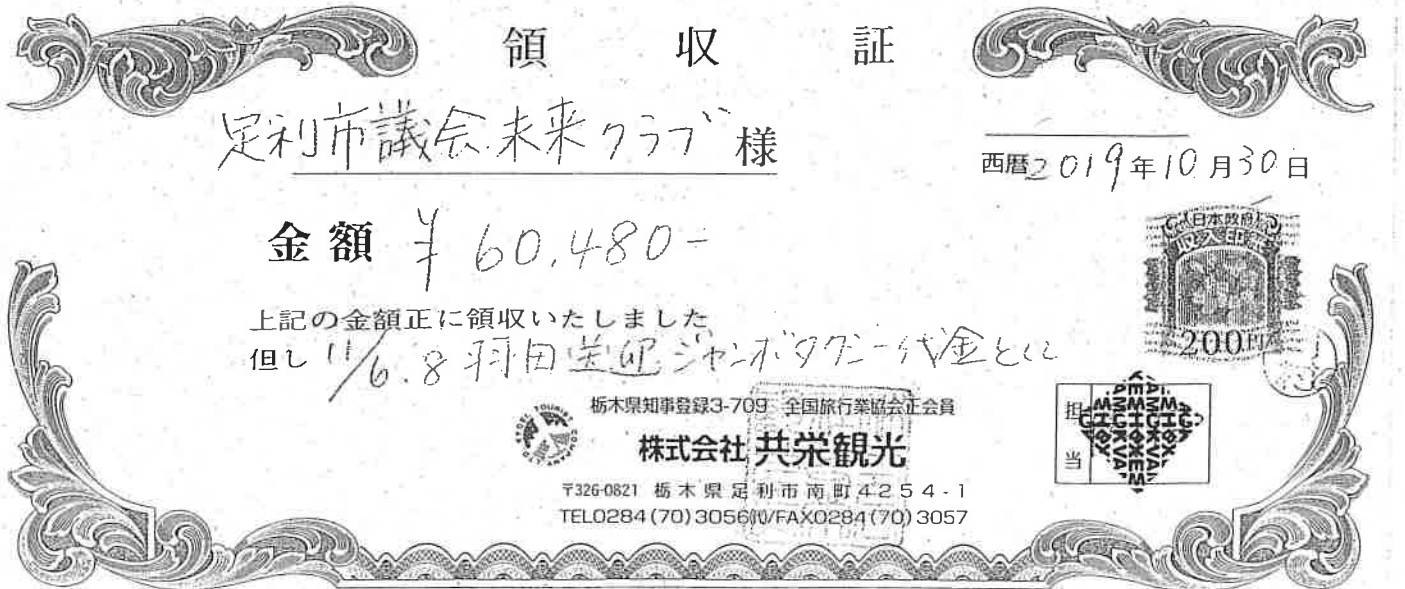 領収証
足利市議会未来クラブ様
西暦2019年10月30日
金額 ¥60,480-
日本政府
収入印紙
200円
上記の金額正に領収いたしました
但し 11/6.8 羽田送迎ジャンボタクシー代金として
栃木県知事登録3-709 全国旅行業協会正会員
株式会社 共栄観光
〒326-0821 栃木県足利市南町4254-1
TEL0284(70)3056㈹/FAX0284(70)3057
担当